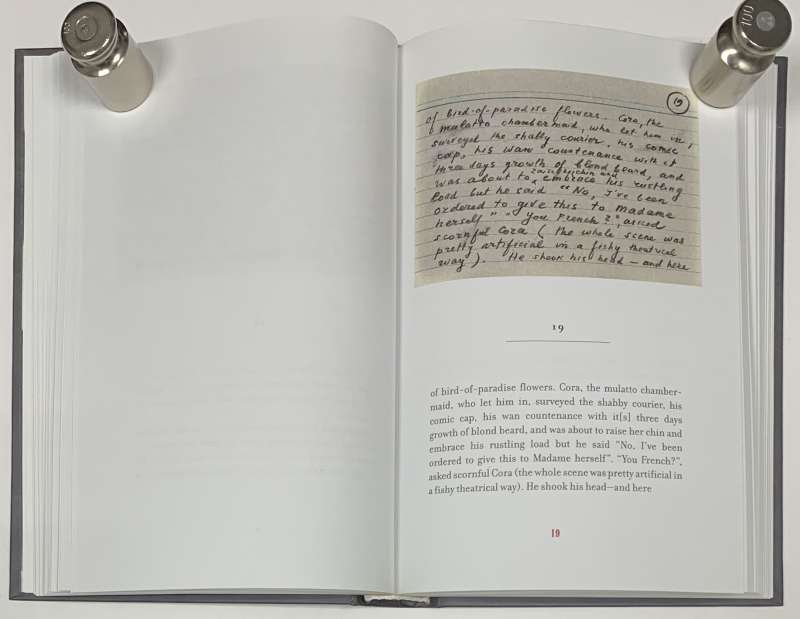 19
of bird-of-paradise flowers. Cora, the
mulatto chambermaid, who let him in,
surveyed the shabby courier, his comic
cap, his wan countenance with it
three days growth of blond beard, and
raise her chin and
was about to embrace his rustling
load but he said "No, I've been
ordered to give this to Madame
herself" "You French?", asked
scornful Cora (the whole scene was
pretty artificial in a fishy theatrical
way). He shook his head — and here
19
of bird-of-paradise flowers. Cora, the mulatto chamber-
maid, who let him in, surveyed the shabby courier, his
comic cap, his wan countenance with it[s] three days
growth of blond beard, and was about to raise her chin and
embrace his rustling load but he said "No, I've been
ordered to give this to Madame herself". "You French?",
asked scornful Cora (the whole scene was pretty artificial in
a fishy theatrical way). He shook his head—and here
19
100